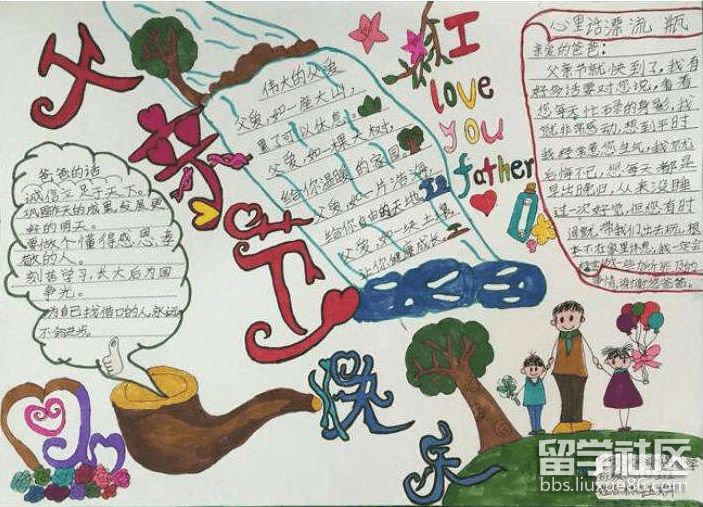 父亲节
快乐
I
love
you
father
伟大的父爱
父爱,如一座大山,
累了可以休息。
父爱,如一棵大树,
给你温暖的家园。
父爱,如一片浩海,
给你自由的天地
父爱,如一块土壤,
让你健康成长。
爸爸的话
诚信立足于天下。
巩固昨天的成果,发展更
好的明天。
要做个懂得感恩,孝
敬的人。
刻苦学习,长大后为国
争光。
为自己找借口的人,永远
不会进步。
心里话漂流瓶
亲爱的爸爸:
父亲节就快到了,我有
好多话要对您说,看着
您每天忙碌的身影,我
就非常感动,想到平时
我经常惹您生气,我就
后悔不已,您每天都是
早出晚归,从来没睡
过一次好觉,但您有时
间就带我们出去玩,根
本不在家里休息,我一定会
事情,谢谢您爸爸。
留学社区
bbs.liuxue86.com